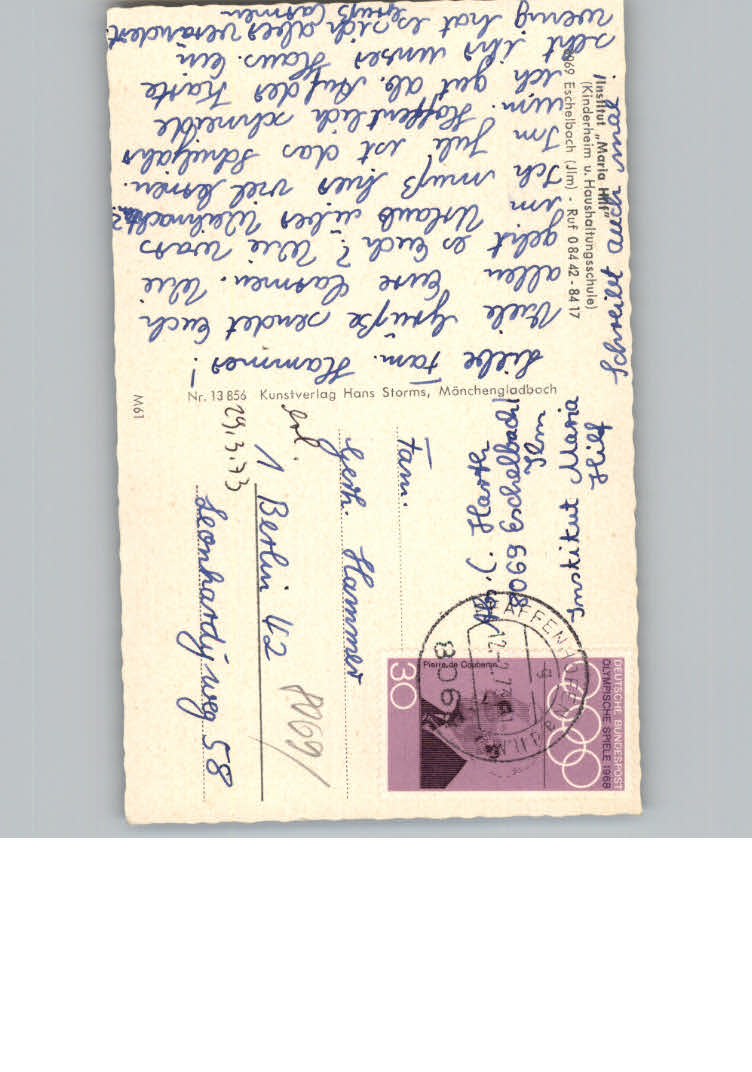 Institut „Maria Hilf"
(Kinderheim u. Haushaltungsschule)
8069 Eschelbach (Jlm) - Ruf 08442-8417
Liebe Fam. Hammer!
Viele Grüße sendet Euch
allen Eure Carmen. Wie
geht es Euch? Wie wars
im Urlaub über Weihnachten?
Ich muß hier viel lernen.
Im Juli ist das Schuljahr
um. Hoffentlich schneide
ich gut ab. Auf der Karte
seht ihr unser Haus. Ein
wenig hat es sich aber verändert.
Gruß Carmen
Schreibt auch mal.
Nr. 13 856 Kunstverlag Hans Storms, Mönchengladbach
M61
Abs.: C. Harth
8069 Eschelbach/
Ilm
Institut Maria
Hilf
DEUTSCHE BUNDESPOST
OLYMPISCHE SPIELE 1968
Pierre de Coubertin
30
PFAFFENHOFEN
806
Fam.
Gerh. Hammer
1 Berlin 42
Leonhardyweg 58
8069/
erl.
29.3.73